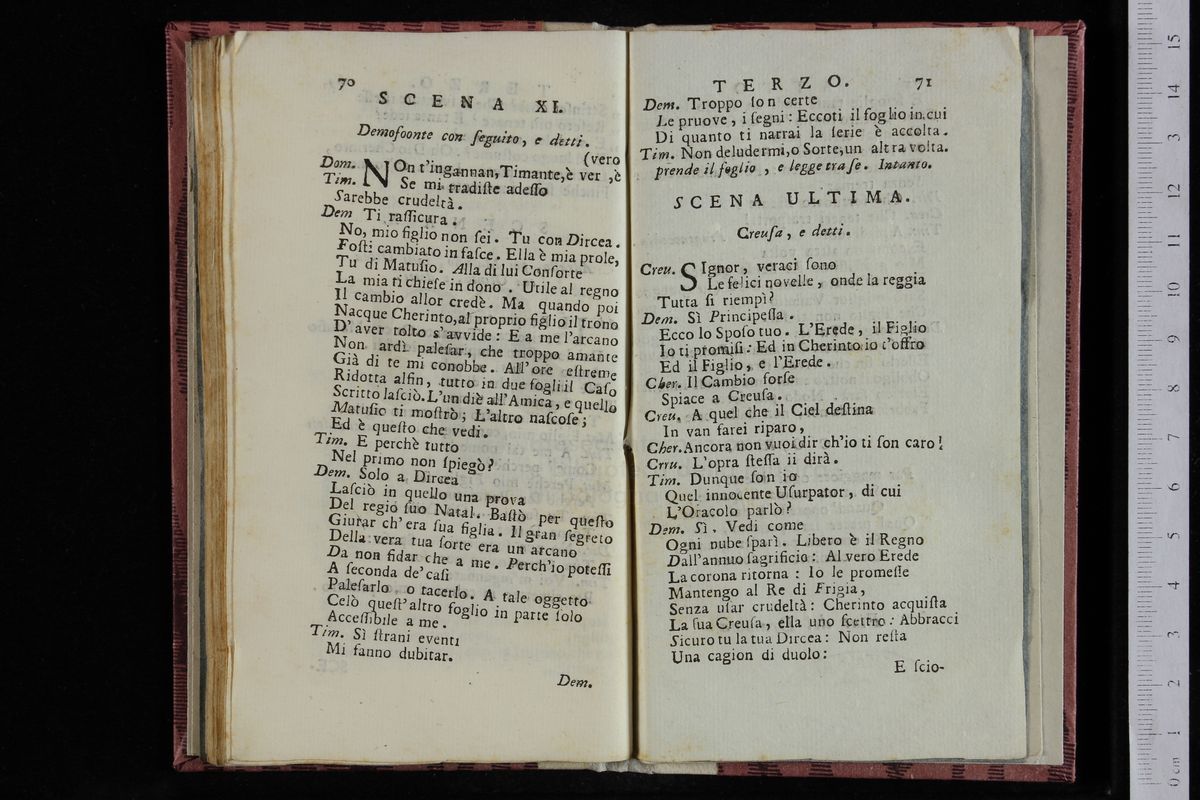 70
SCENA XI.
Demofoonte con ſeguito, e detti.
(vero
Dom. NOn t'ingannan, Timante, è ver , è
Tim. Se mi tradiſte adeſſo
Sarebbe crudeltà.
Dem Ti raſſicura.
No, mio figlio non ſei. Tu con Dircea.
Foſti cambiato in faſce. Ella è mia prole,
Tu di Matuſio. Alla di lui Conſorte
La mia ti chieſe in dono . Utile al regno
Il cambio allor credè. Ma quando poi
Nacque Cherinto, al proprio figlio il trono
D' aver tolto s'avvide : E a me l'arcano
Non ardì paleſar, che troppo amante
Già di te mi conobbe. All'ore eſtreme
Ridotta alfin, tutto in due fogli il Caſo
Scritto laſciò. L'un diè all'Amica, e quello
Matuſio ti moſtrò; L'altro naſcoſe;
Ed è queſto che vedi.
Tim. E perchè tutto
Nel primo non ſpiegò?
Dem. Solo a Dircea
Laſciò in quello una prova
Del regio ſuo Natal. Baſtò per queſto
Giurar ch' era ſua figlia. Il gran ſegreto
Della vera tua ſorte era un arcano
Da non fidar che a me. Perch'io poteſſi
A ſeconda de' caſi
Paleſarlo, o tacerlo. A tale oggetto
Celò queſt'altro foglio in parte ſolo
Acceſſibile a me.
Tim. Sì ſtrani eventi
Mi fanno dubitar.
Dem.
TERZO. 71
Dem. Troppo ſon certe
Le pruove, i ſegni : Eccoti il foglio in cui
Di quanto ti narrai la ſerie è accolta.
Tim. Non deludermi, o Sorte, un altra volta.
prende il foglio , e legge tra ſe. Intanto.
SCENA ULTIMA.
Creuſa, e detti.
Creu. SIgnor, veraci ſono
Le felici novelle, onde la reggia
Tutta ſi riempì?
Dem. Sì Principeſſa.
Ecco lo Spoſo tuo. L'Erede, il Figlio
Io ti promiſi : Ed in Cherinto io t'offro
Ed il Figlio, e l'Erede.
Cher. Il Cambio forſe
Spiace a Creuſa.
Creu. A quel che il Ciel deſtina
In van farei riparo,
Cher. Ancora non vuoi dir ch'io ti ſon caro!
Crru. L'opra ſteſſa ii dirà.
Tim. Dunque ſon io
Quel innocente Uſurpator, di cui
L'Oracolo parlò?
Dem. Sì. Vedi come
Ogni nube ſparì. Libero è il Regno
Dall'annuo ſagrificio : Al vero Erede
La corona ritorna : Io le promeſſe
Mantengo al Re di Frigia,
Senza uſar crudeltà : Cherinto acquiſta
La ſua Creuſa, ella uno ſcettro : Abbracci
Sicuro tu la tua Dircea : Non reſta
Una cagion di duolo :
E ſcio-
0 cm 1 2 3 4 5 6 7 8 9 10 11 12 13 14 15